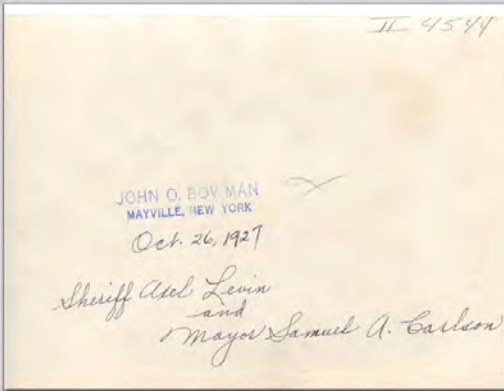 II 4544
JOHN O. BOWMAN
MAYVILLE, NEW YORK
Oct. 26, 1927
Sheriff Axel Levin
and
Mayor Samuel A. Carlson